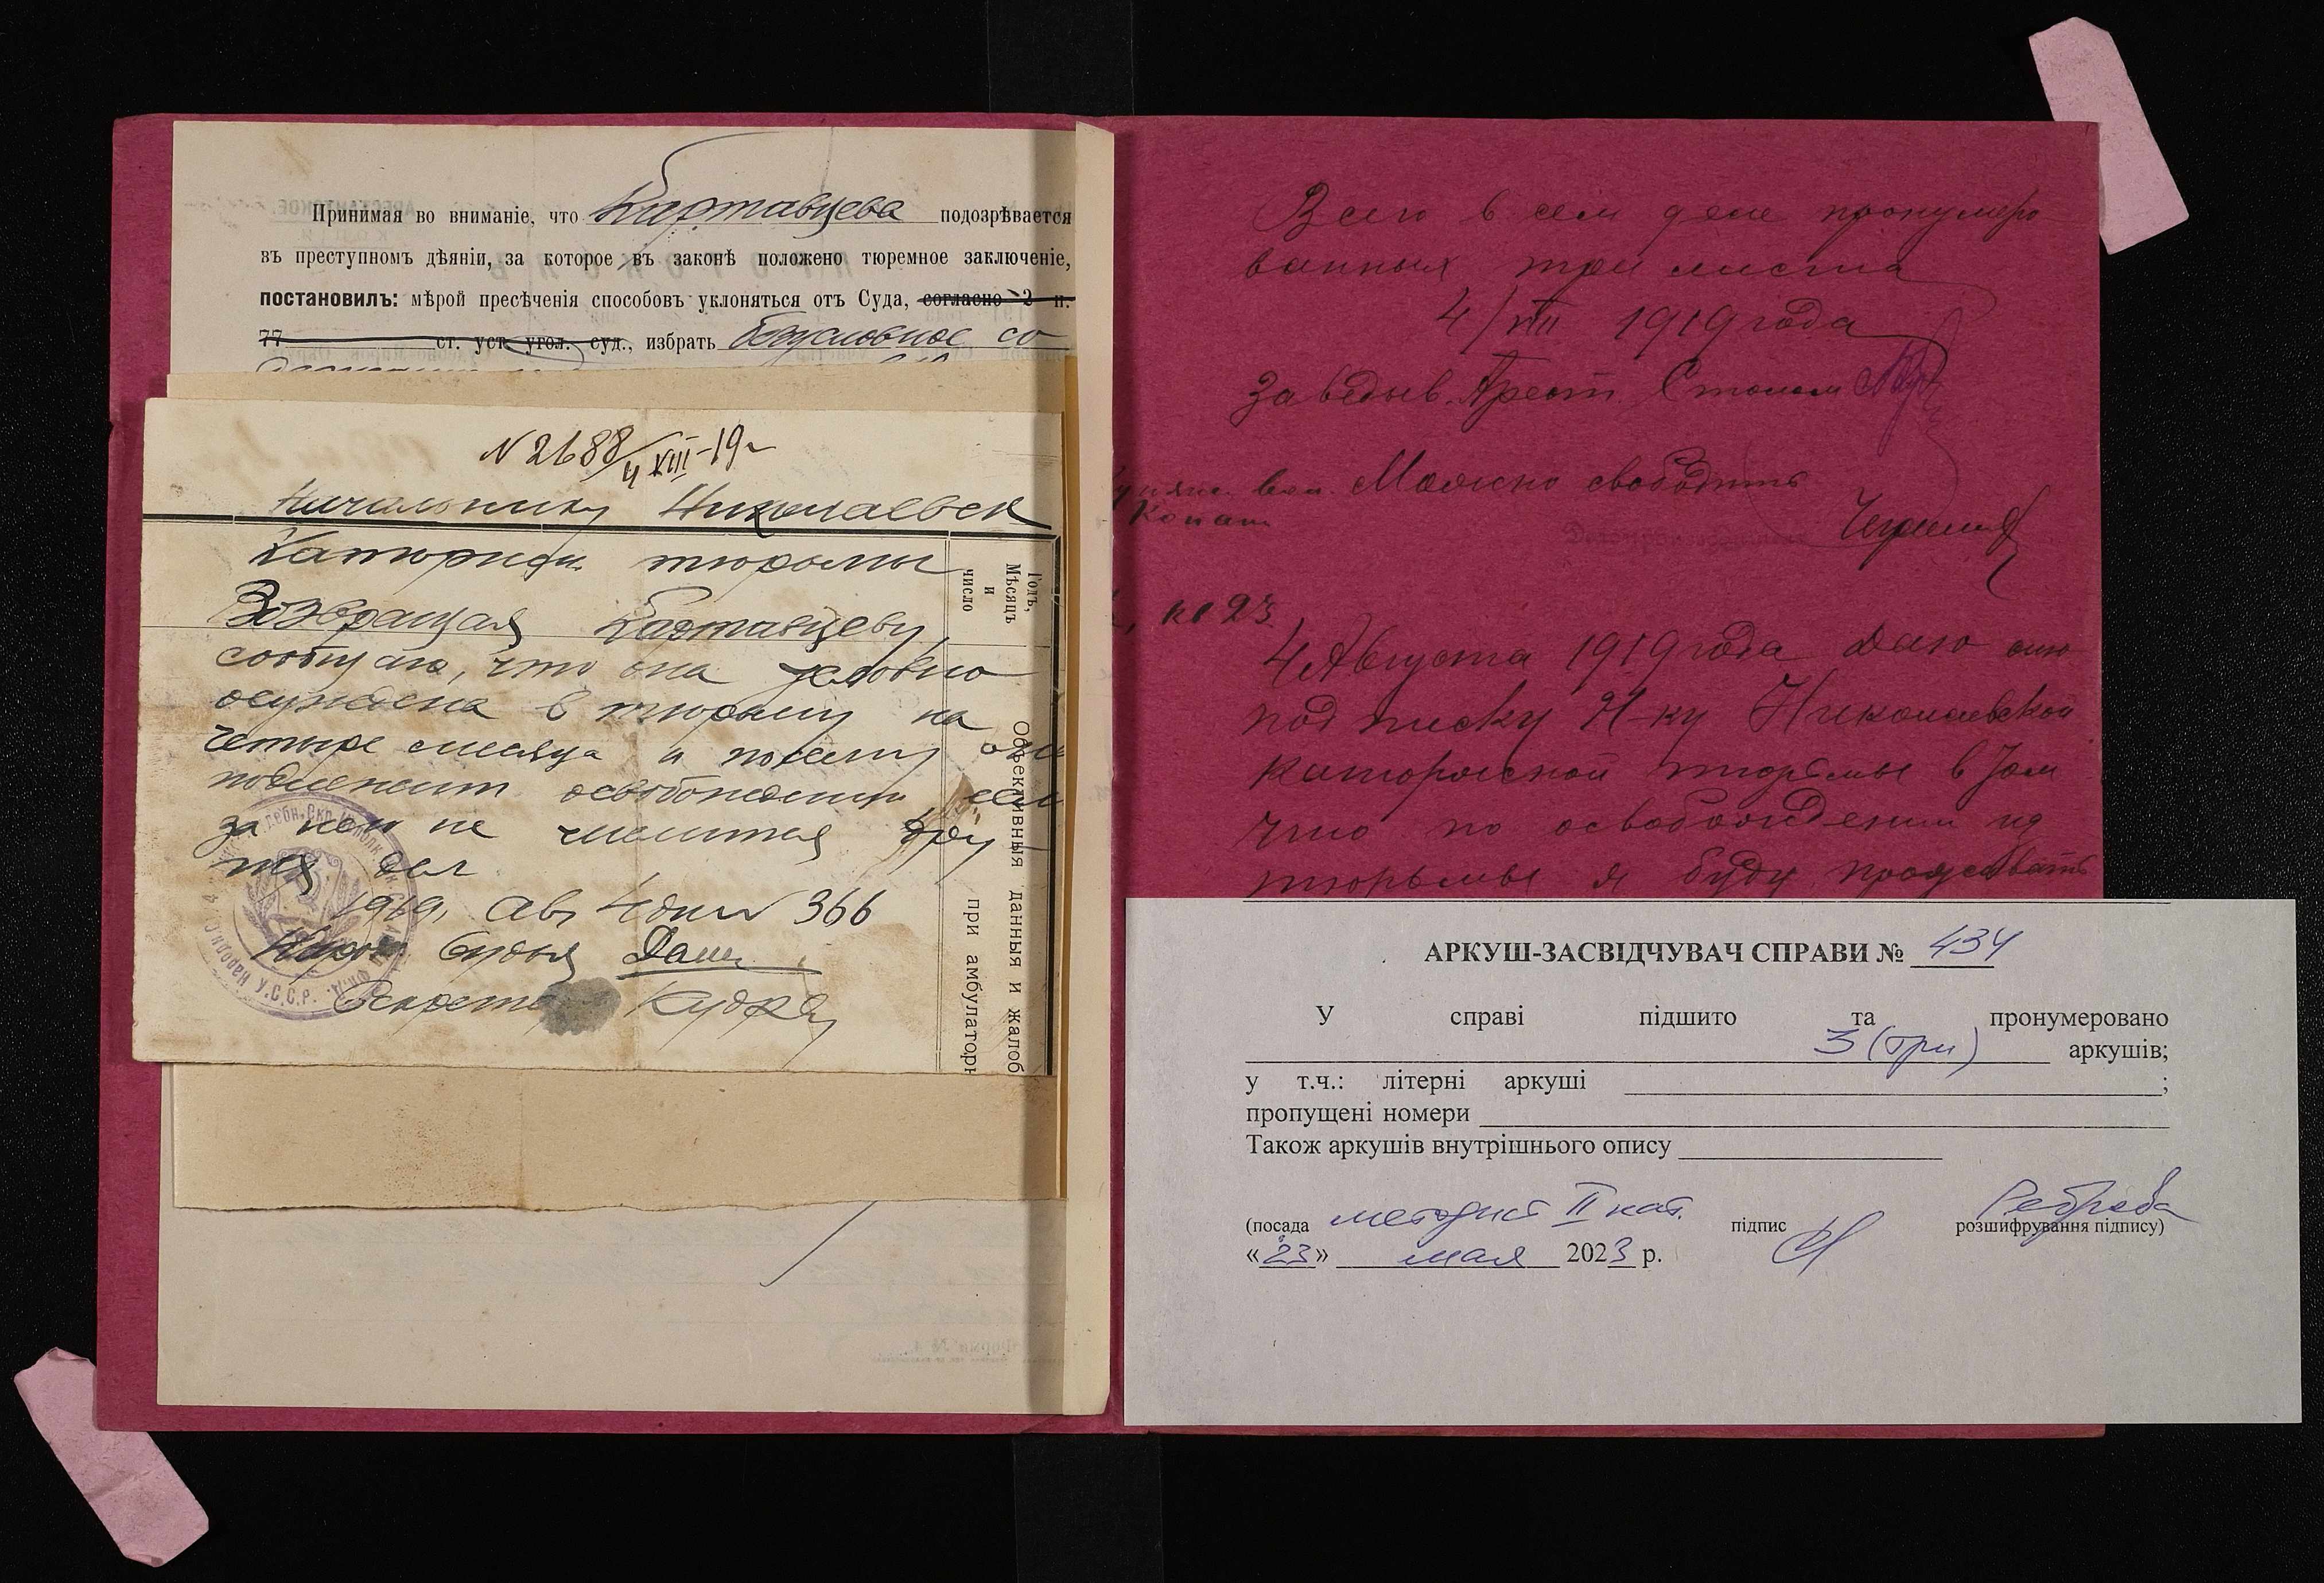 Принимая во вниманіе, что Картавцева подозрѣвается
въ преступномъ дѣяніи, за которое въ законѣ положено тюремное заключеніе,
постановилъ: мѣрой пресѣченія способовъ уклоняться отъ Суда, согласно 2 п.
77 ст. уст. угол. суд., избрать безусловное со
N 2688/4 XIII-19г
Начальнику Николаевск
Каторжн. тюрьмы
Возвращая Картавцеву,
сообщаю, что она условно
осуждена в тюрьму на
четыре месяца и посему
подлежит освобождению если
за ней не числится дру
гих дел
1919, Авг 4 дня N 366
Народн. Судья
Секрет
Годъ,
Мѣсяцъ
и
число
Объективныя данныя и жалоб
при амбулаторн
У.С.С.Р.
Всего в сем деле пронумеро
ванных три листа
4/VIII 1919 года
Заведыв. Арест. Столом
Можно свободить
, кв 23.
4 Августа 1919 года Даю сию
подписку Н-ку Николаевской
каторжной тюрьмы в том
что по освобождении из
тюрьмы я буду проживать
АРКУШ-ЗАСВІДЧУВАЧ СПРАВИ № 434
У справі підшито та пронумеровано
3 (три) аркушів;
у т.ч.: літерні аркуші ;
пропущені номери
Також аркушів внутрішнього опису
(посада методист II кат. підпис Реброва розшифрування підпису)
«23» мая 2023 р.